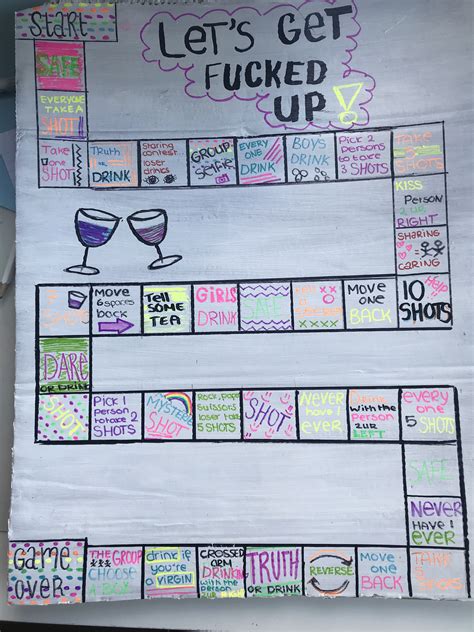 Start
LET'S GET
FUCKED
UP!
SAFE
EVERYONE
TAKE A
SHOT!
Take
one
SHOT
Truth
or
DRINK
Staring
contest..
loser
drinks
GROUP
SELFIE
EVERY
ONE
DRINK
BOYS
DRINK
Pick 2
persons
to take
3 SHOTS
TAKE
SHOTS
KISS
Person
2 UR
RIGHT
SHARING
CARING
10
SHOTS
Move
one
BACK
Tell
a
secret
SAFE
GIRLS
DRINK
Tell
SOME
TEA
Move
6 spaces
back
SHOTS
DARE
OR DRINK
SHOT
Pick 1
Person
to take 2
SHOTS
MYSTERY
SHOT
Rock, Paper
Scissors
loser take
5 SHOTS
SHOT
Never
have I
ever
Drink
with the
Person
2 UR
LEFT
every
one
5 SHOTS
SAFE
Never
HAVE I
ever
TAKE
SHOTS
Move
one
BACK
REVERSE
TRUTH
OR DRINK
CROSSED
ARM
DRINKING
WITH
drink if
you're
a VIRGIN
THE GROUP
CHOOSE
Game
over